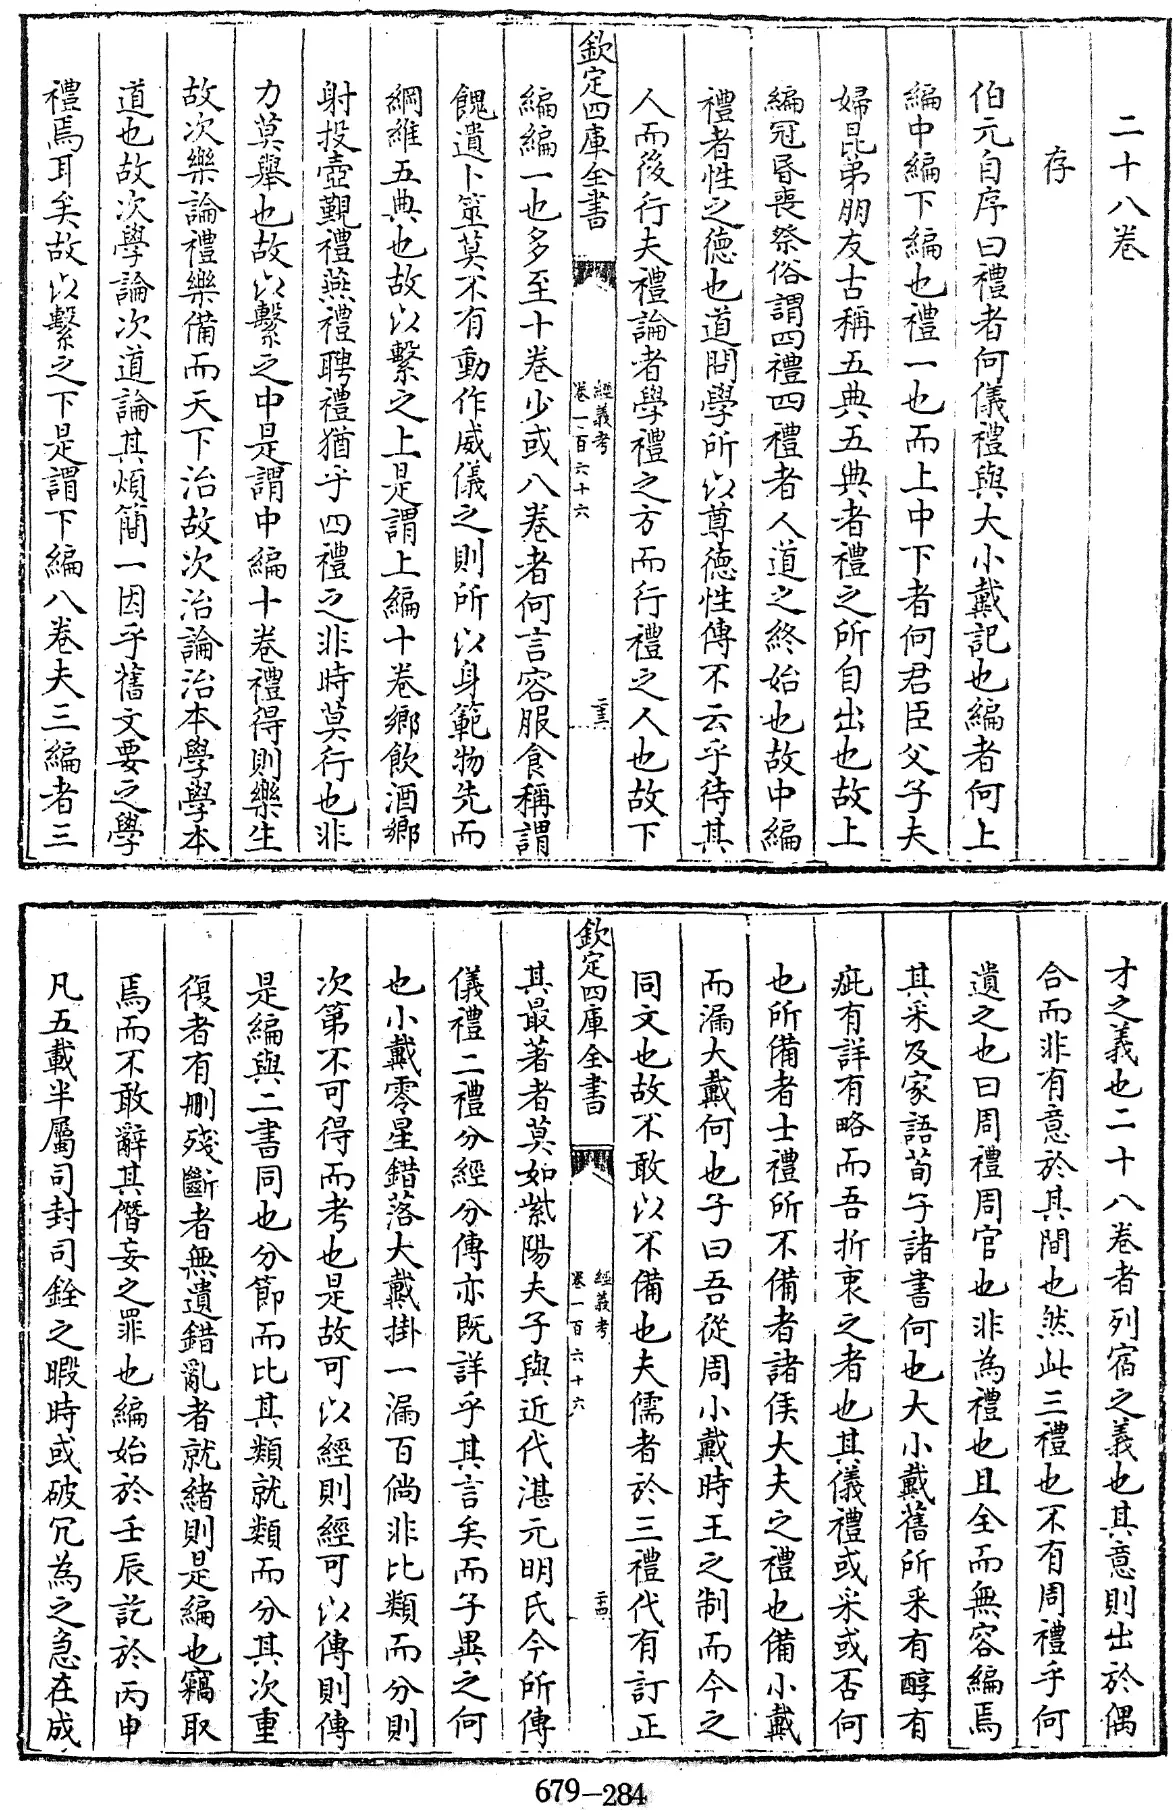 二十八卷
存
伯元自序曰禮者何儀禮與大小戴記也編者何上
編中編下編也禮一也而上中下者何君臣父子夫
婦昆弟朋友古稱五典五典者禮之所自出也故上
編冠昏喪祭俗謂四禮四禮者人道之終始也故中編
禮者性之德也道問學所以尊德性傳不云乎待其
人而後行夫禮論者學禮之方而行禮之人也故下
欽定四庫全書
經義考
卷一百六十六
二十三
編編一也多至十卷少或八卷者何言容服食稱謂
餽遺卜筮莫不有動作威儀之則所以身範物先而
綱維五典也故以繫之上是謂上編十卷鄉飲酒鄉
射投壺覲禮燕禮聘禮猶乎四禮之非時莫行也非
力莫舉也故以繫之中是謂中編十卷禮得則樂生
故次樂論禮樂備而天下治故次治論治本學學本
道也故次學論次道論其煩簡一因乎舊文要之學
禮焉耳矣故以繫之下是謂下編八卷夫三編者三
才之義也二十八卷者列宿之義也其意則出於偶
合而非有意於其間也然此三禮也不有周禮乎何
遺之也曰周禮周官也非為禮也且全而無容編焉
其采及家語荀子諸書何也大小戴舊所采有醇有
疵有詳有略而吾折衷之者也其儀禮或采或否何
也所備者士禮所不備者諸侯大夫之禮也備小戴
而漏大戴何也子曰吾從周小戴時王之制而今之
同文也故不敢以不備也夫儒者於三禮代有訂正
欽定四庫全書
經義考
卷一百六十六
二十四
其最著者莫如紫陽夫子與近代湛元明氏今所傳
儀禮二禮分經分傳亦既詳乎其言矣而子異之何
也小戴零星錯落大戴掛一漏百倘非比類而分則
次第不可得而考也是故可以經則經可以傳則傳
是編與二書同也分節而比其類就類而分其次重
復者有刪殘斷者無遺錯亂者就緒則是編也竊取
焉而不敢辭其僭妄之罪也編始於壬辰訖於丙申
凡五載半屬司封司銓之暇時或破冗為之急在成
679-284